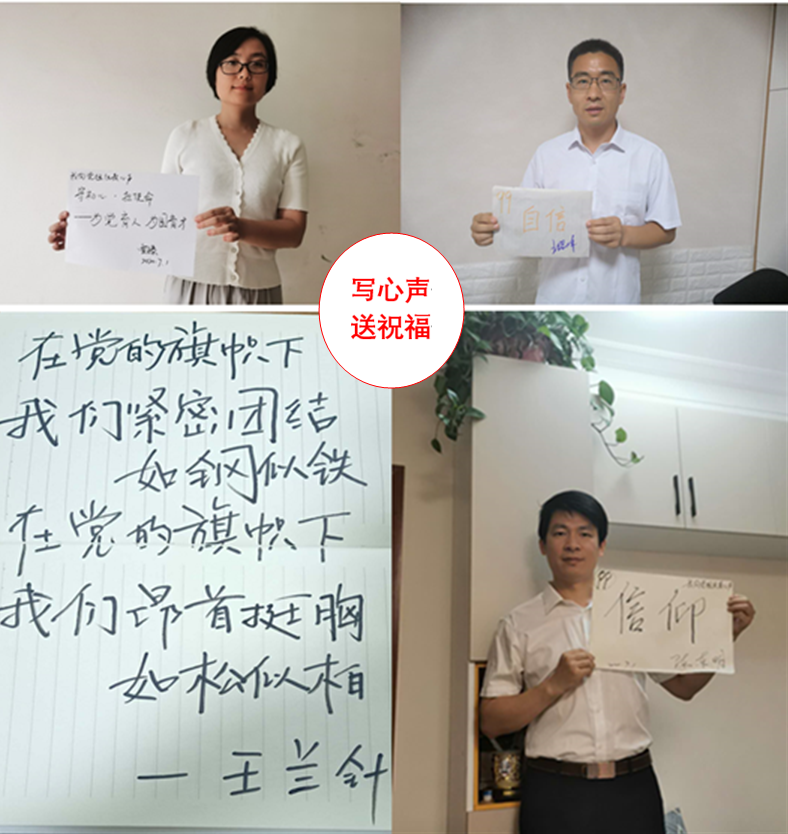 我向党组织表心声
守初心·担使命
——为党育人 为国育才
2020.7.1
自信
写心声
送祝福
在党的旗帜下
我们紧密团结
如钢似铁
在党的旗帜下
我们昂首挺胸
如松似柏
—王兰针
信仰